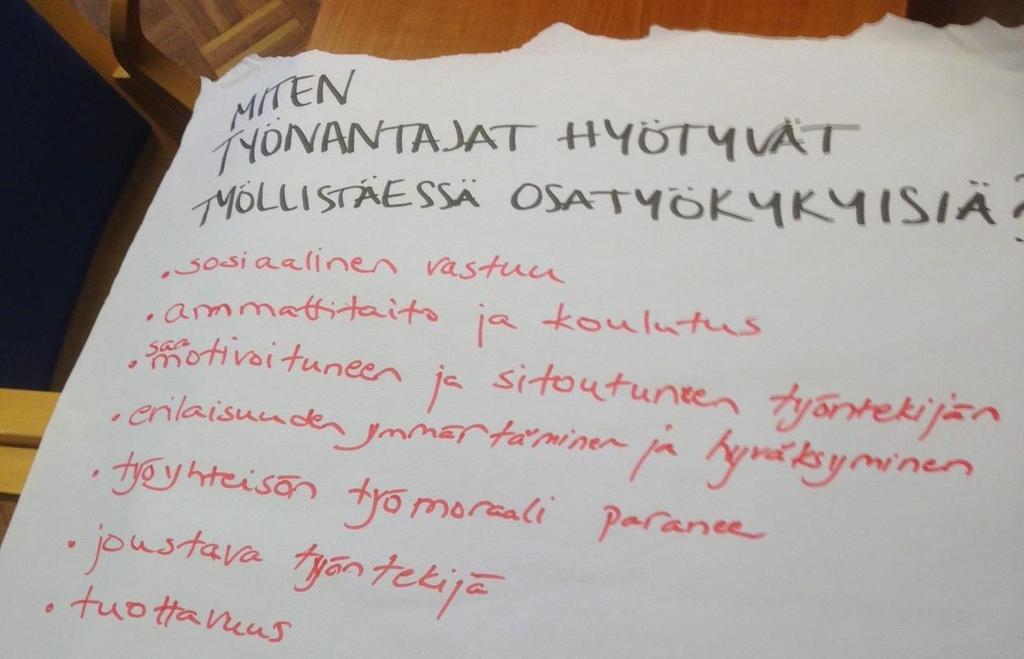 MITEN
TYÖNANTAJAT HYÖTYVÄT
TYÖLLISTÄESSÄ OSATYÖKYKYISIÄ?
• sosiaalinen vastuu
• ammattitaito ja koulutus
• saa motivoituneen ja sitoutuneen työntekijän
• erilaisuuden ymmärtäminen ja hyväksyminen
• työyhteisön työmoraali paranee
• joustava työntekijä
• tuottavuus